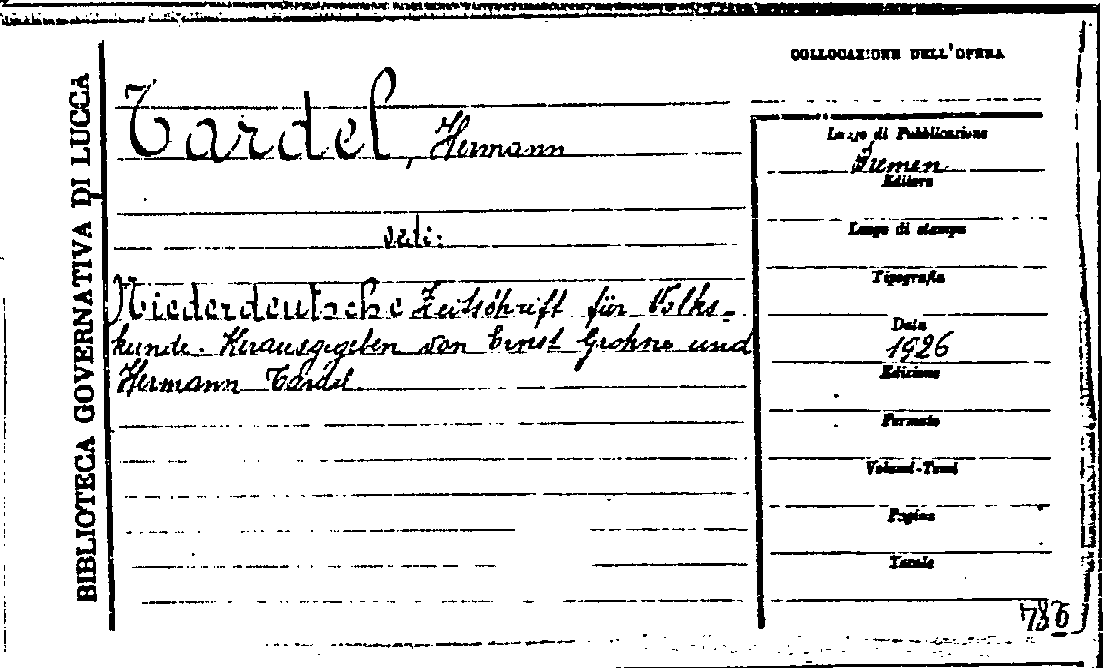 BIBLIOTECA GOVERNATIVA DI LUCCA
Tardel, Hermann
vedi:
Niederdeutsche Zeitschrift für Volks=
kunde. Herausgegeben von Ernst Grohne und
Hermann Tardel.
COLLOCAZIONE DELL'OPERA
Luogo di Pubblicazione
Bremen
Editore
Luogo di stampa
Tipografia
Data
1926
Edizione
Formato
Volumi-Tomi
Pagine
Tavole
786